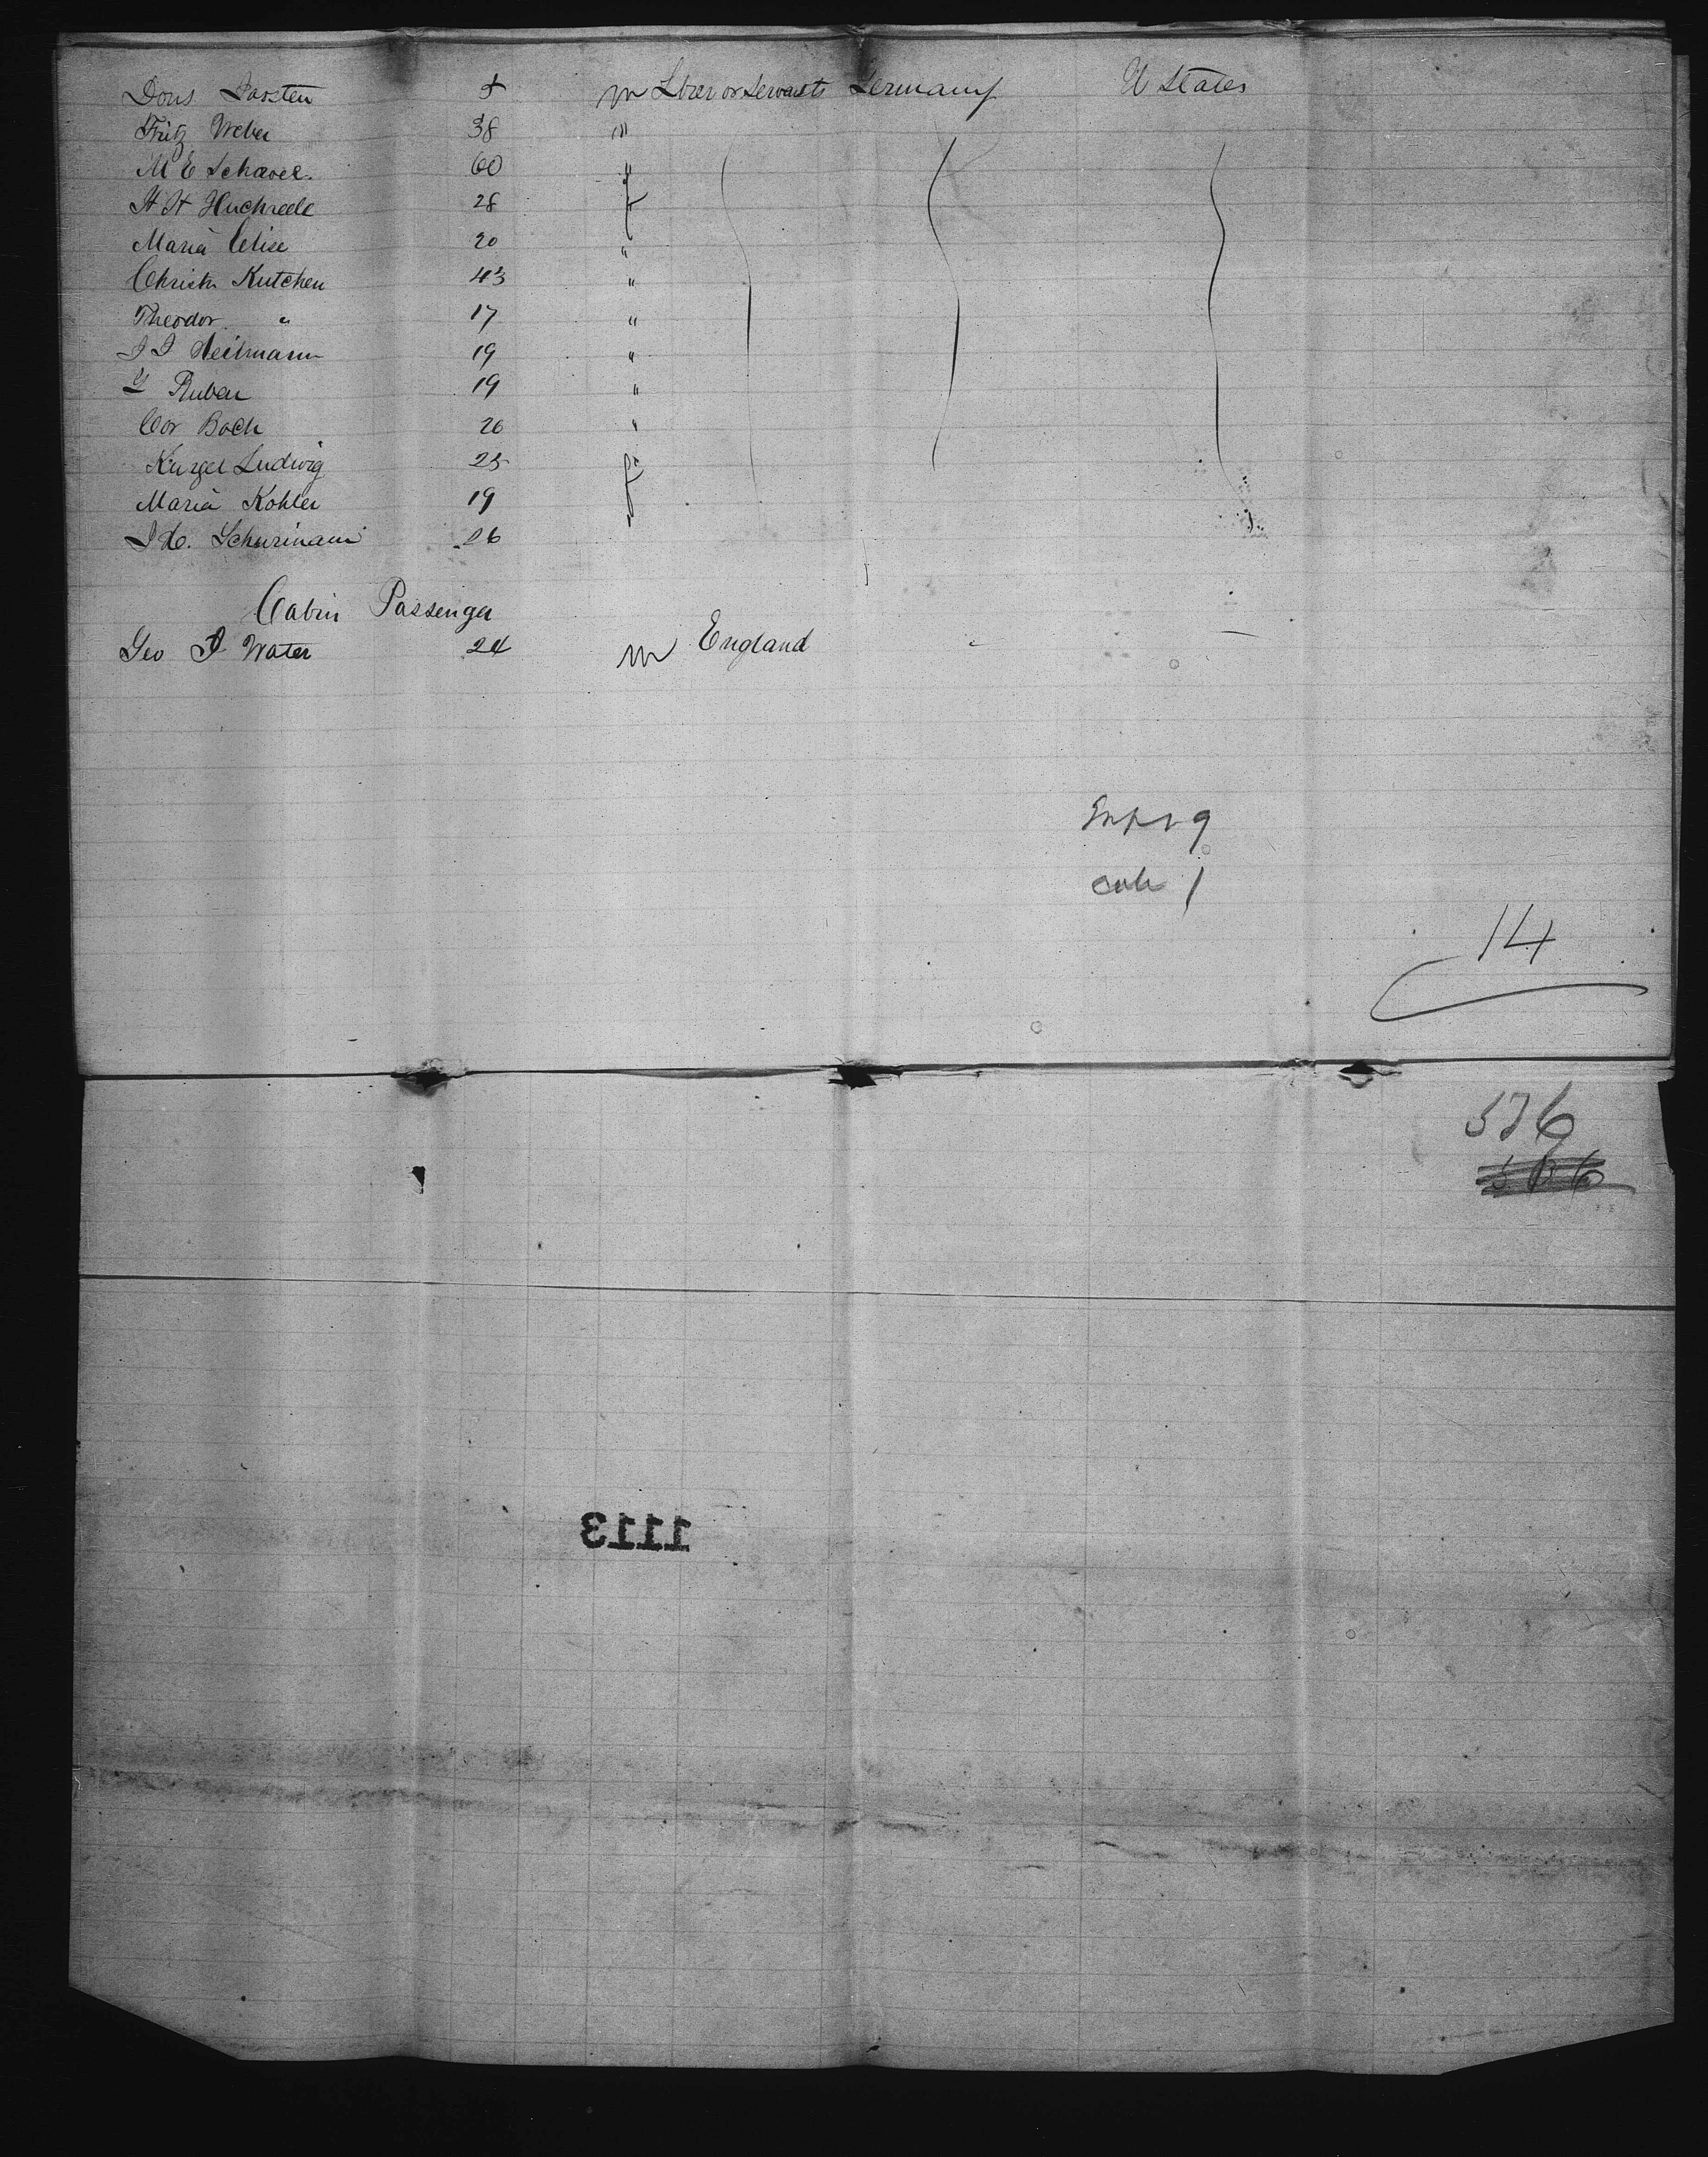 Doris Karsten 5 m Lbrer or Servants Germany U States
Fritz Weber 38 "
M E Schavel. 60 "
H H Huchrede 28 f
Maria Elise 20 "
Christn Kutcher 43 "
Theodor " 17 "
J J Heilmann 19 "
Y Ruben 19 "
Cor Boch 26 "
Kurzel Ludwig 25 "
Maria Kohler 19 f
J H. Schurmann 26 "
Cabin Passenger
Geo F Water 24 m England -
9
cab 1
14
576
506
1113